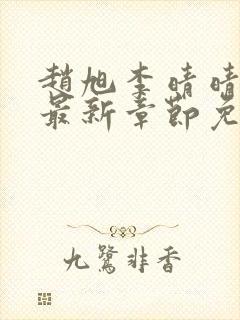 趙旭李晴晴
最新章節免
九鷺非香